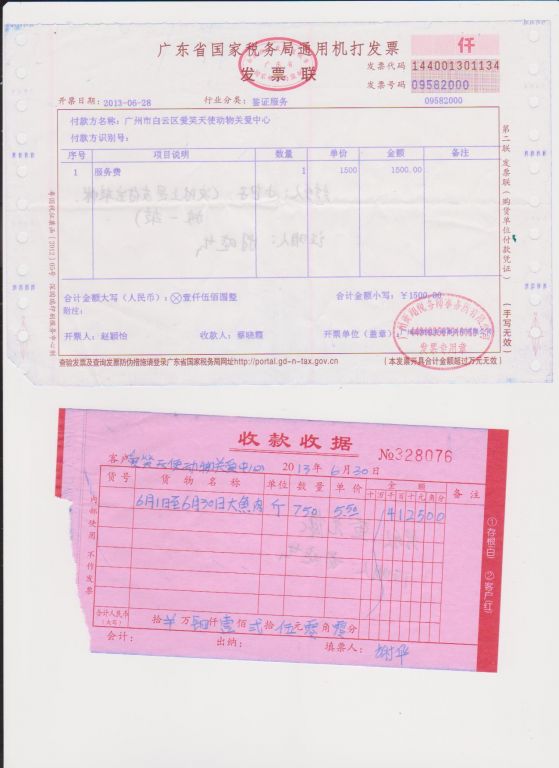 广东省国家税务局通用机打发票
仟
发票联
发票代码 144001301134
发票号码 09582000
开票日期:2013-06-28 行业分类:鉴证服务 09582000
付款方名称:广州市白云区爱笑天使动物关爱中心
付款方识别号:
序号 项目说明 数量 单价 金额 备注
1 服务费 1 1500 1500.00
合计金额大写(人民币):ⓧ壹仟伍佰圆整 合计金额小写:¥1500.00
附注:
开票人:赵颖怡 收款人:蔡晓霞 开票单位(盖章):
发票专用章
查验发票及查询发票防伪措施请登录广东省国家税务局网址http://portal.gd-n-tax.gov.cn (本发票开具合计金额超过万元无效)
第二联 发票联(购货单位付款凭证)
(手写无效)
收款收据 №328076
客户 爱笑天使动物关爱中心 2013年6月30日
货号 货物名称 单位 数量 单价 金额 备注
十万千百十元角分
6月1日至6月30日大鱼肉 斤 750 5.50 412500
内部使用 不作发票
①存根(白) ②客户(红)
合计人民币(大写) 拾 万 肆仟壹佰贰拾伍元零角零分
会计: 出纳: 填票人:谢华